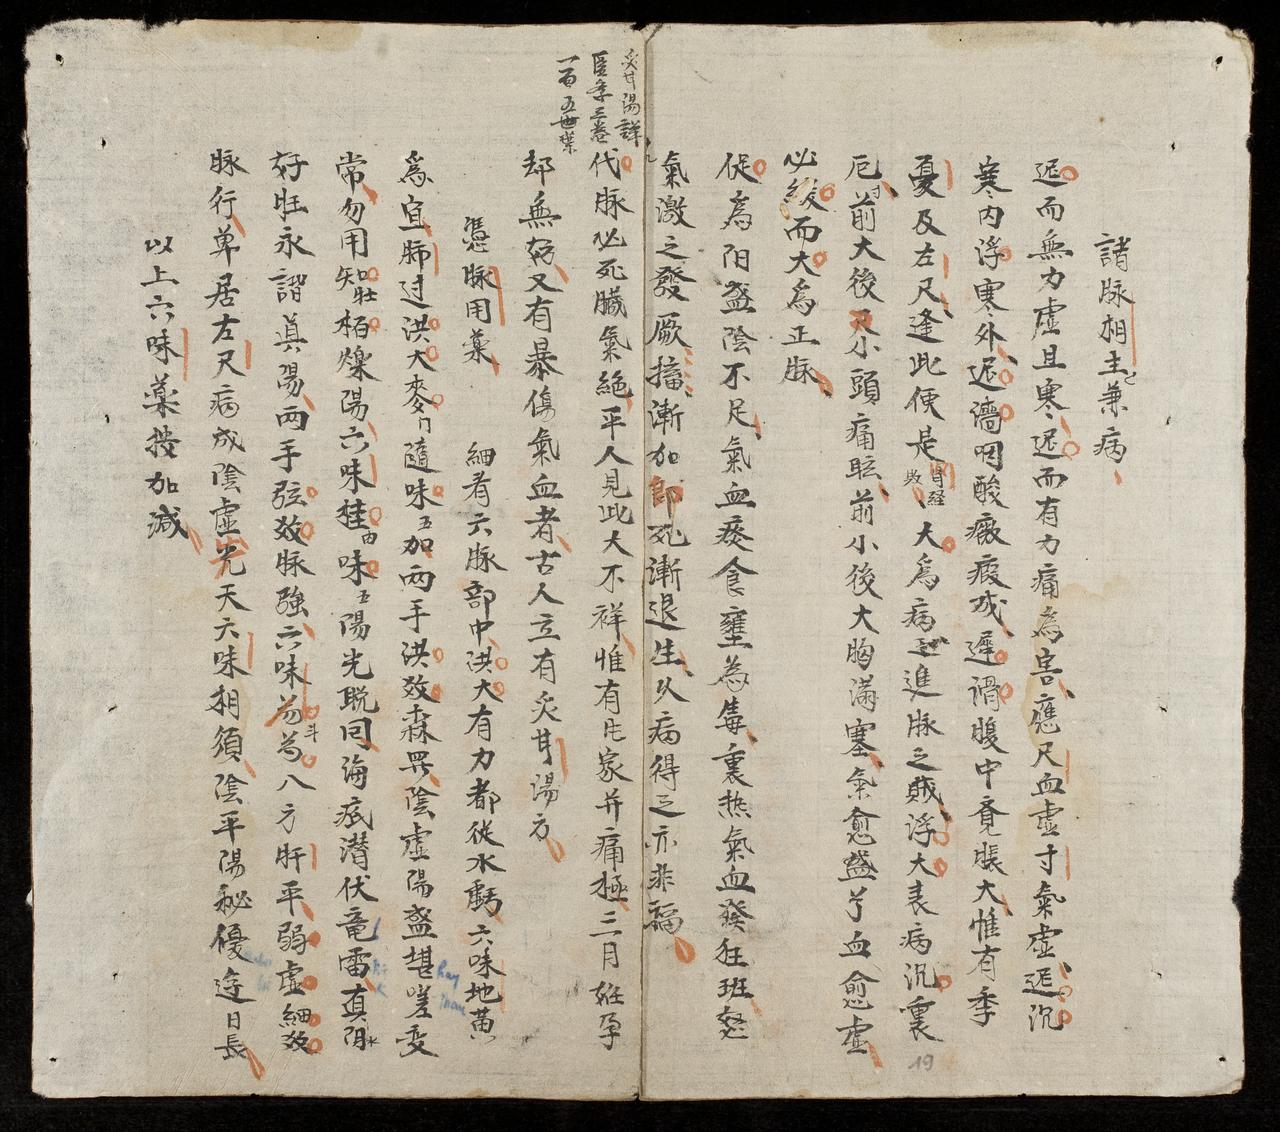 諸脉相主之兼病
遲而無力虛且寒遲而有力痛為害應尺血虛寸氣虛遲沉
寒內浮寒外遲濇咽酸癥瘕成遲滑腹中覓脹大惟有季
憂及左尺逢此便是腎經敗大為病進脉之賊浮大表病沉裏
厄寸前大後尺小頭痛眩前小後大胸滿塞氣愈盛兮血愈虛
必緩而大為正脉
促為阳盛陰不足氣血痰食壅為毒裏热氣血發狂班怒
氣激之發厥搐漸加即死漸退生久病得之亦非福
代脉必死臟氣絕平人見此大不祥惟有失家并痛極三月妊孕
却無妨又有暴傷氣血者古人立有炙甘湯方
炙甘湯詳
医季三卷
一百五世葉
憑脉用藥
細看六脉部中洪大有力都從水虧六味地黃
為宜肺过洪大麥門隨味五加兩手洪效森畏陰虛陽盛堪嗟变
常勿用知壮栢爍陽六味桂肉味五陽光脱同海底潜伏竜雷真陰水
好旺永謂真陽兩手弦效脉強六味芍為八方肝平弱虛細效
脉行单居左尺病成陰虛先天六味相須陰平陽秘優逰日長
以上六味藥按加減
19